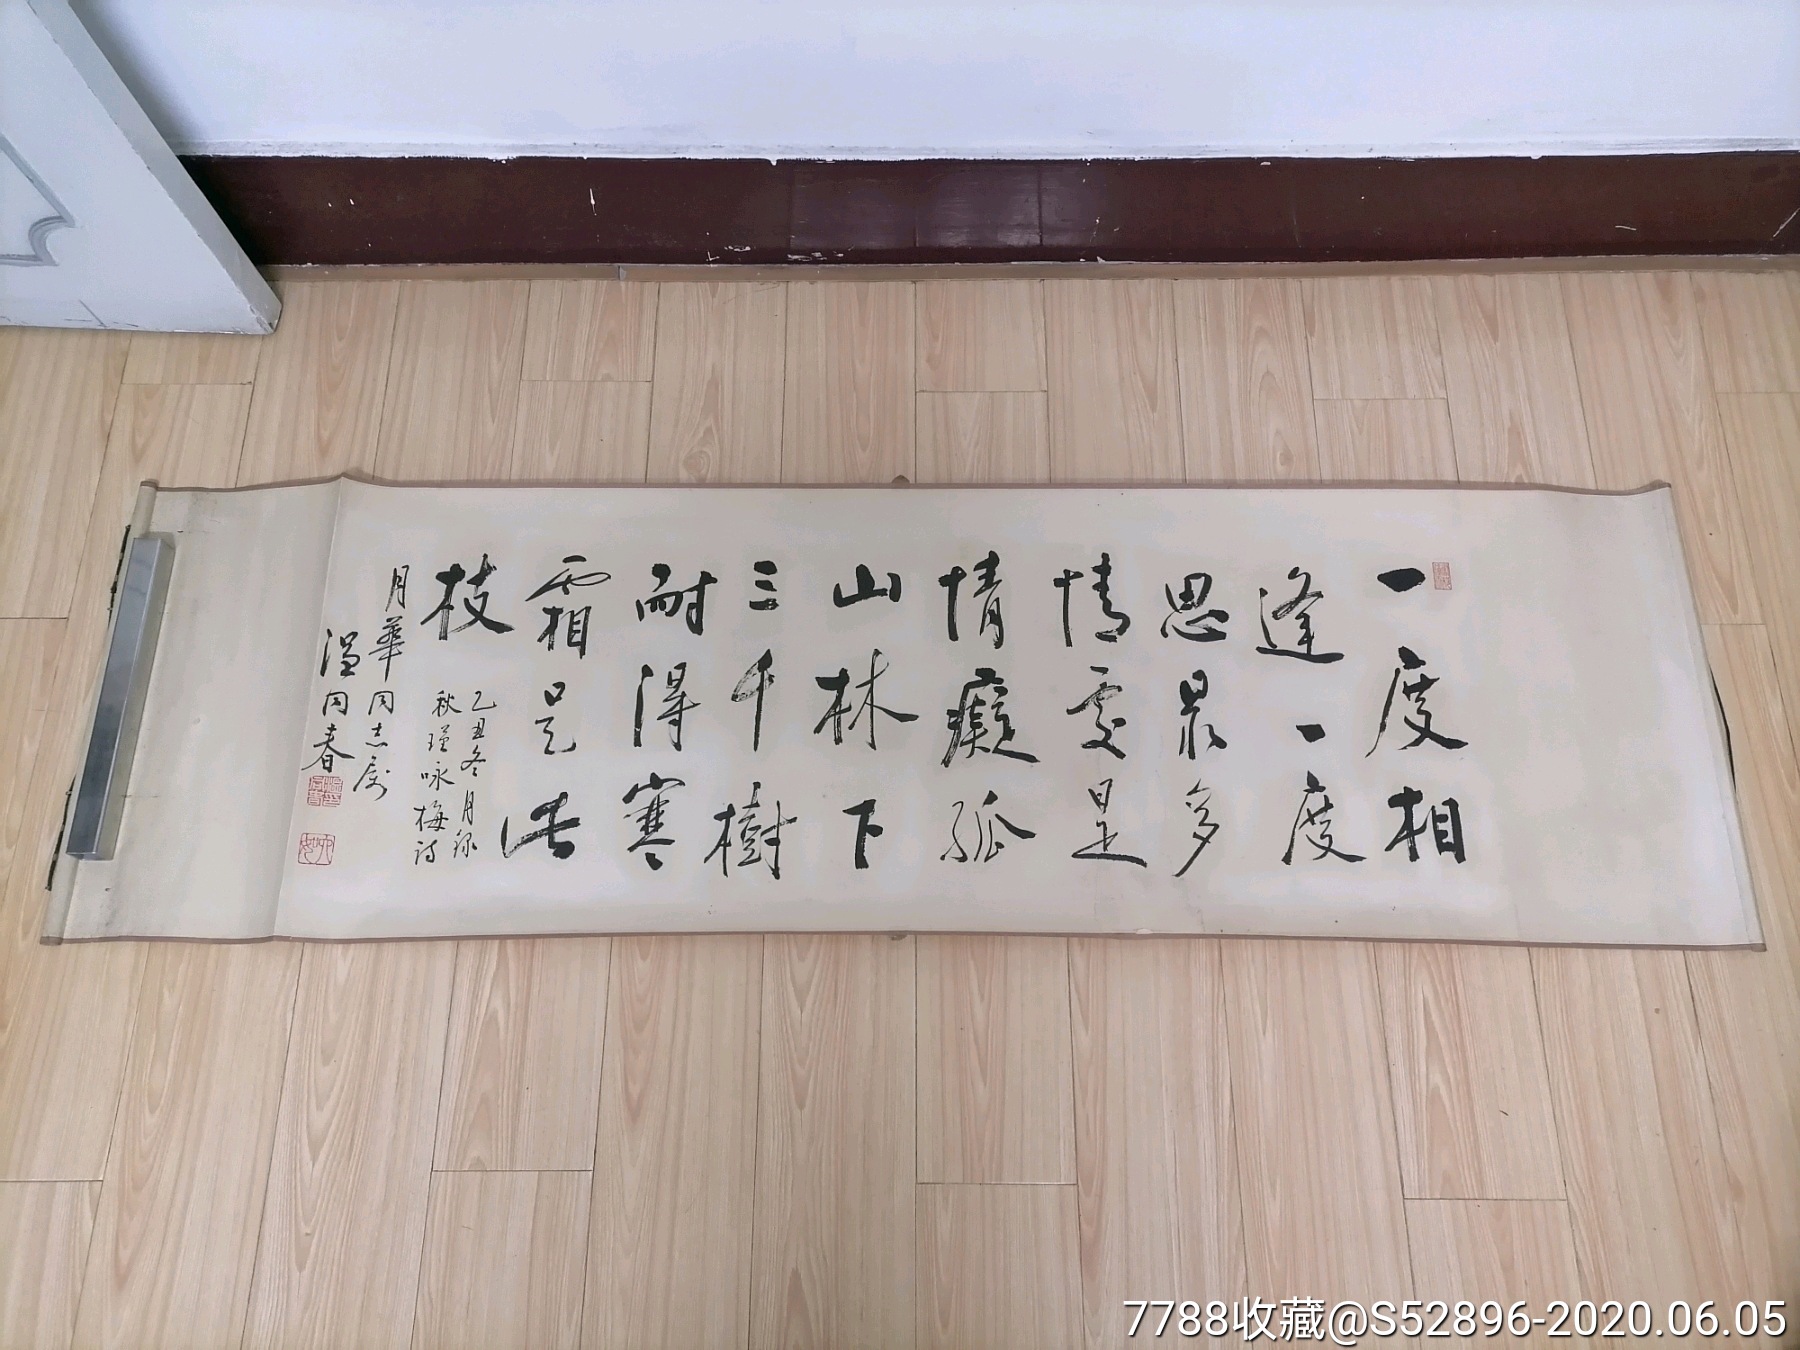 一度相
逢一度
思最多
情處是
情癡孤
山林下
三千樹
耐得寒
霜是此
枝
乙丑冬月録
秋瑾咏梅诗
月華同志属
温同春
7788收藏@S52896-2020.06.05